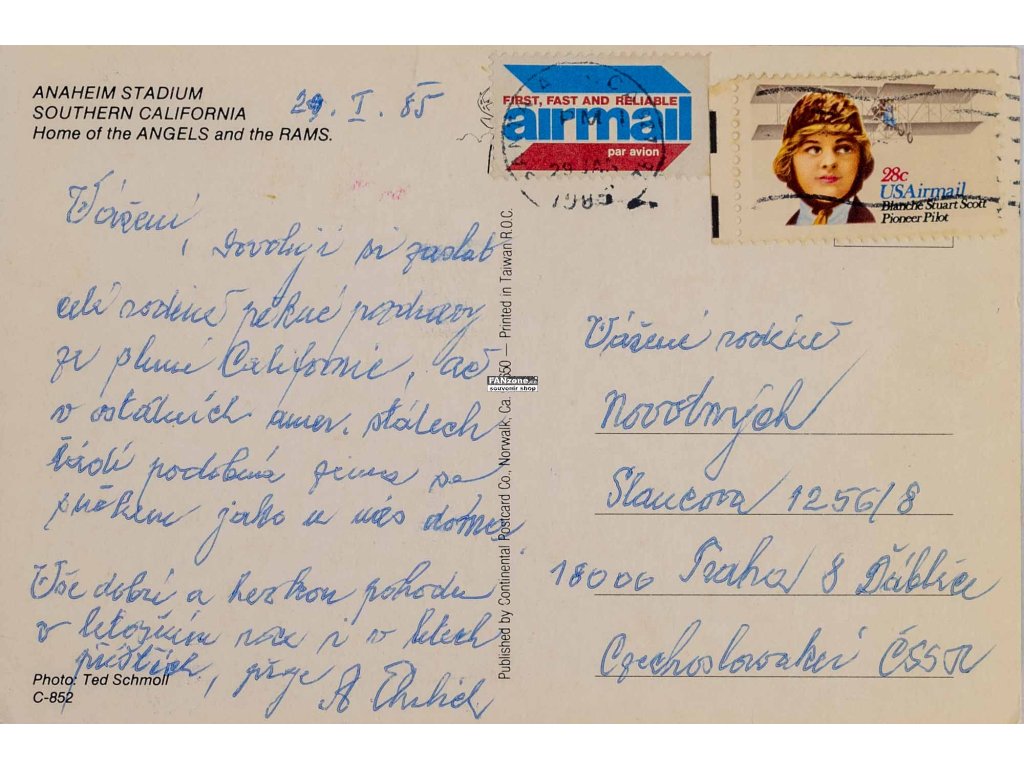 ANAHEIM STADIUM
SOUTHERN CALIFORNIA
Home of the ANGELS and the RAMS.
29. I. 85
Vážení,
Dovoluji si zaslat
celé rodině pěkné pozdravy
ze slunné Californie, ač
v ostatních amer. státech
řádí podobná zima se
sněhem jako u nás doma.
Vše dobré a hezkou pohodu
v letošním roce i v letech
příštích, přeje A Ehrlich
Photo: Ted Schmoll
C-852
Published by Continental Postcard Co., Norwalk, Ca. 650 — Printed in Taiwan R.O.C.
FANzone.cz
souvenir shop
FIRST, FAST AND RELIABLE
airmail
par avion
PM
29 JAN
1985
28c
USAirmail
Blanche Stuart Scott
Pioneer Pilot
Vážené rodině
Novotných
Slancova 1256/8
18000 Praha 8 Ďáblice
Czechoslovakei ČSSR